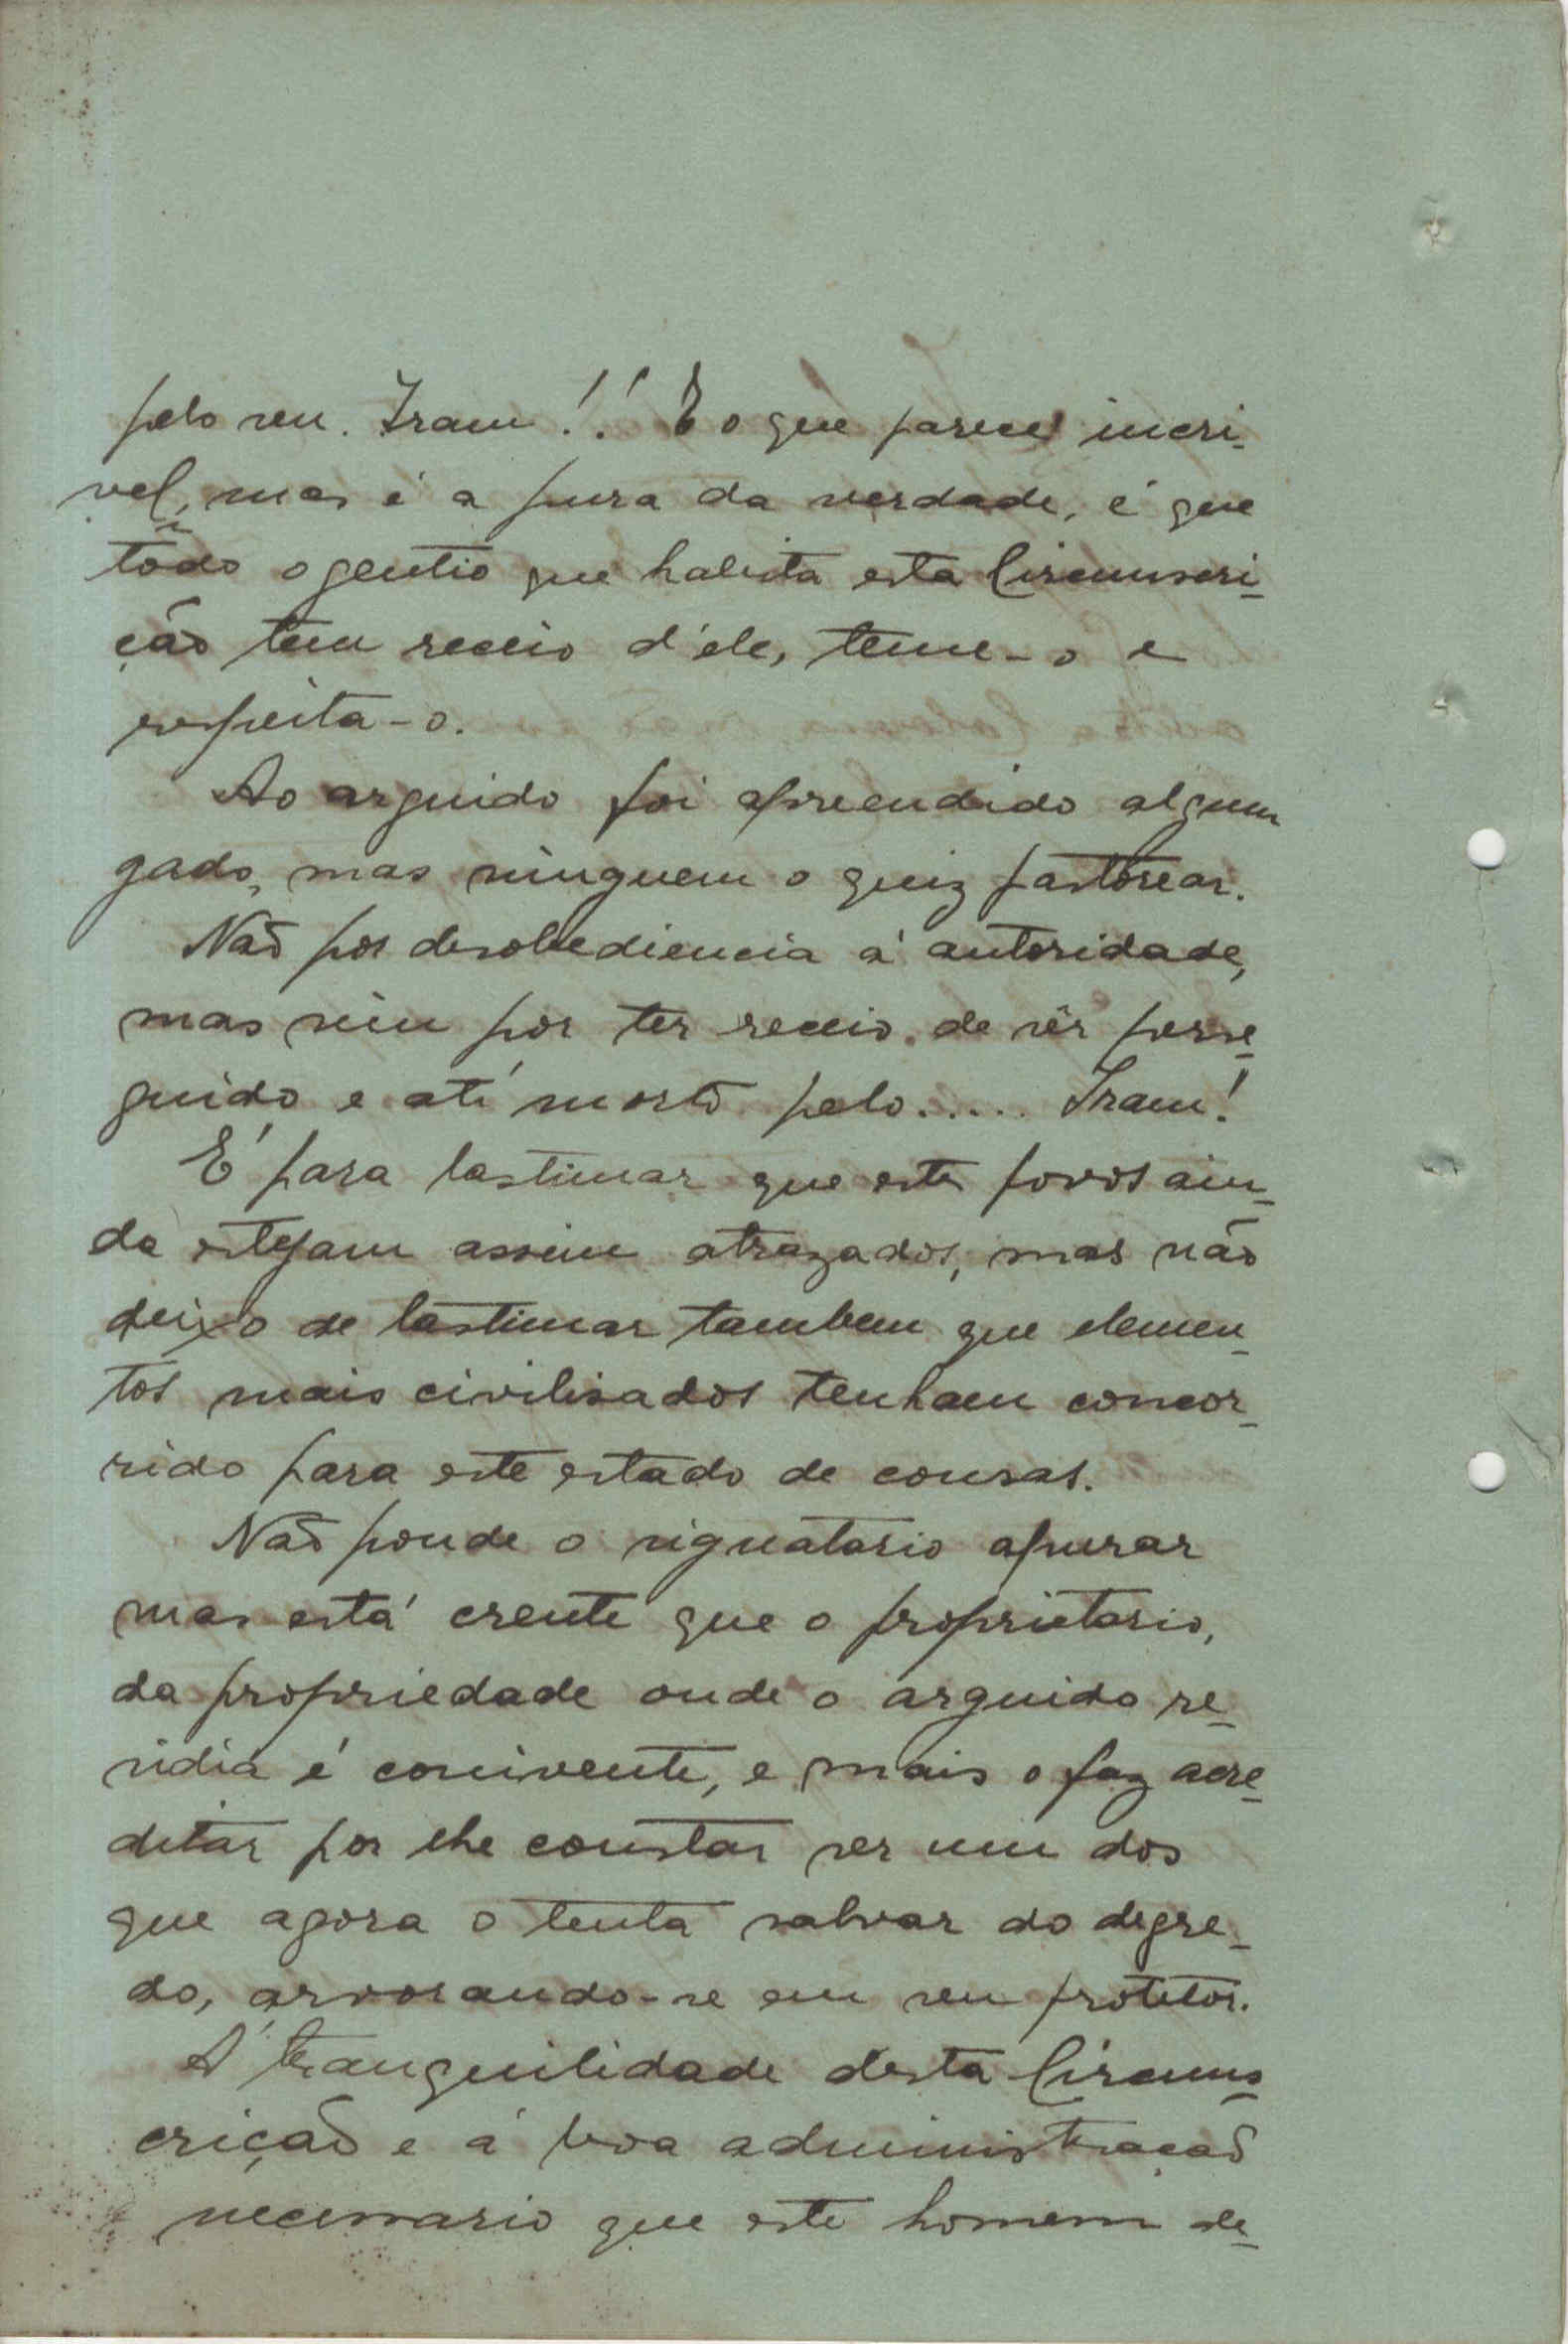 pelo seu. Iram!! E o que parece incri-
vel, mas é a pura da verdade, é que
todo o gentio que habita esta Circumscri-
ção tem receio d'ele, teme-o e
respeita-o.
Ao arguido foi apreendido algum
gado, mas ninguem o quiz pastorear.
Não por desobediencia á autoridade,
mas sim por ter receio de sêr perse-
guido e até morto pelo..... Iram!
É para lastimar que estes povos ain-
da estejam assim atrazados, mas não
deixo de lastimar tambem que elemen-
tos mais civilisados tenham concor-
rido para este estado de cousas.
Não poude o signatario apurar
mas está crente que o proprietario,
da propriedade onde o arguido re-
sidia é conivente, e mais o faz acre-
ditar por lhe constar ser um dos
que agora o tenta salvar do degre-
do, arvorando-se em seu protetor.
Á tranquilidade desta Circums-
crição e á boa administração
é necessario que este homem de-